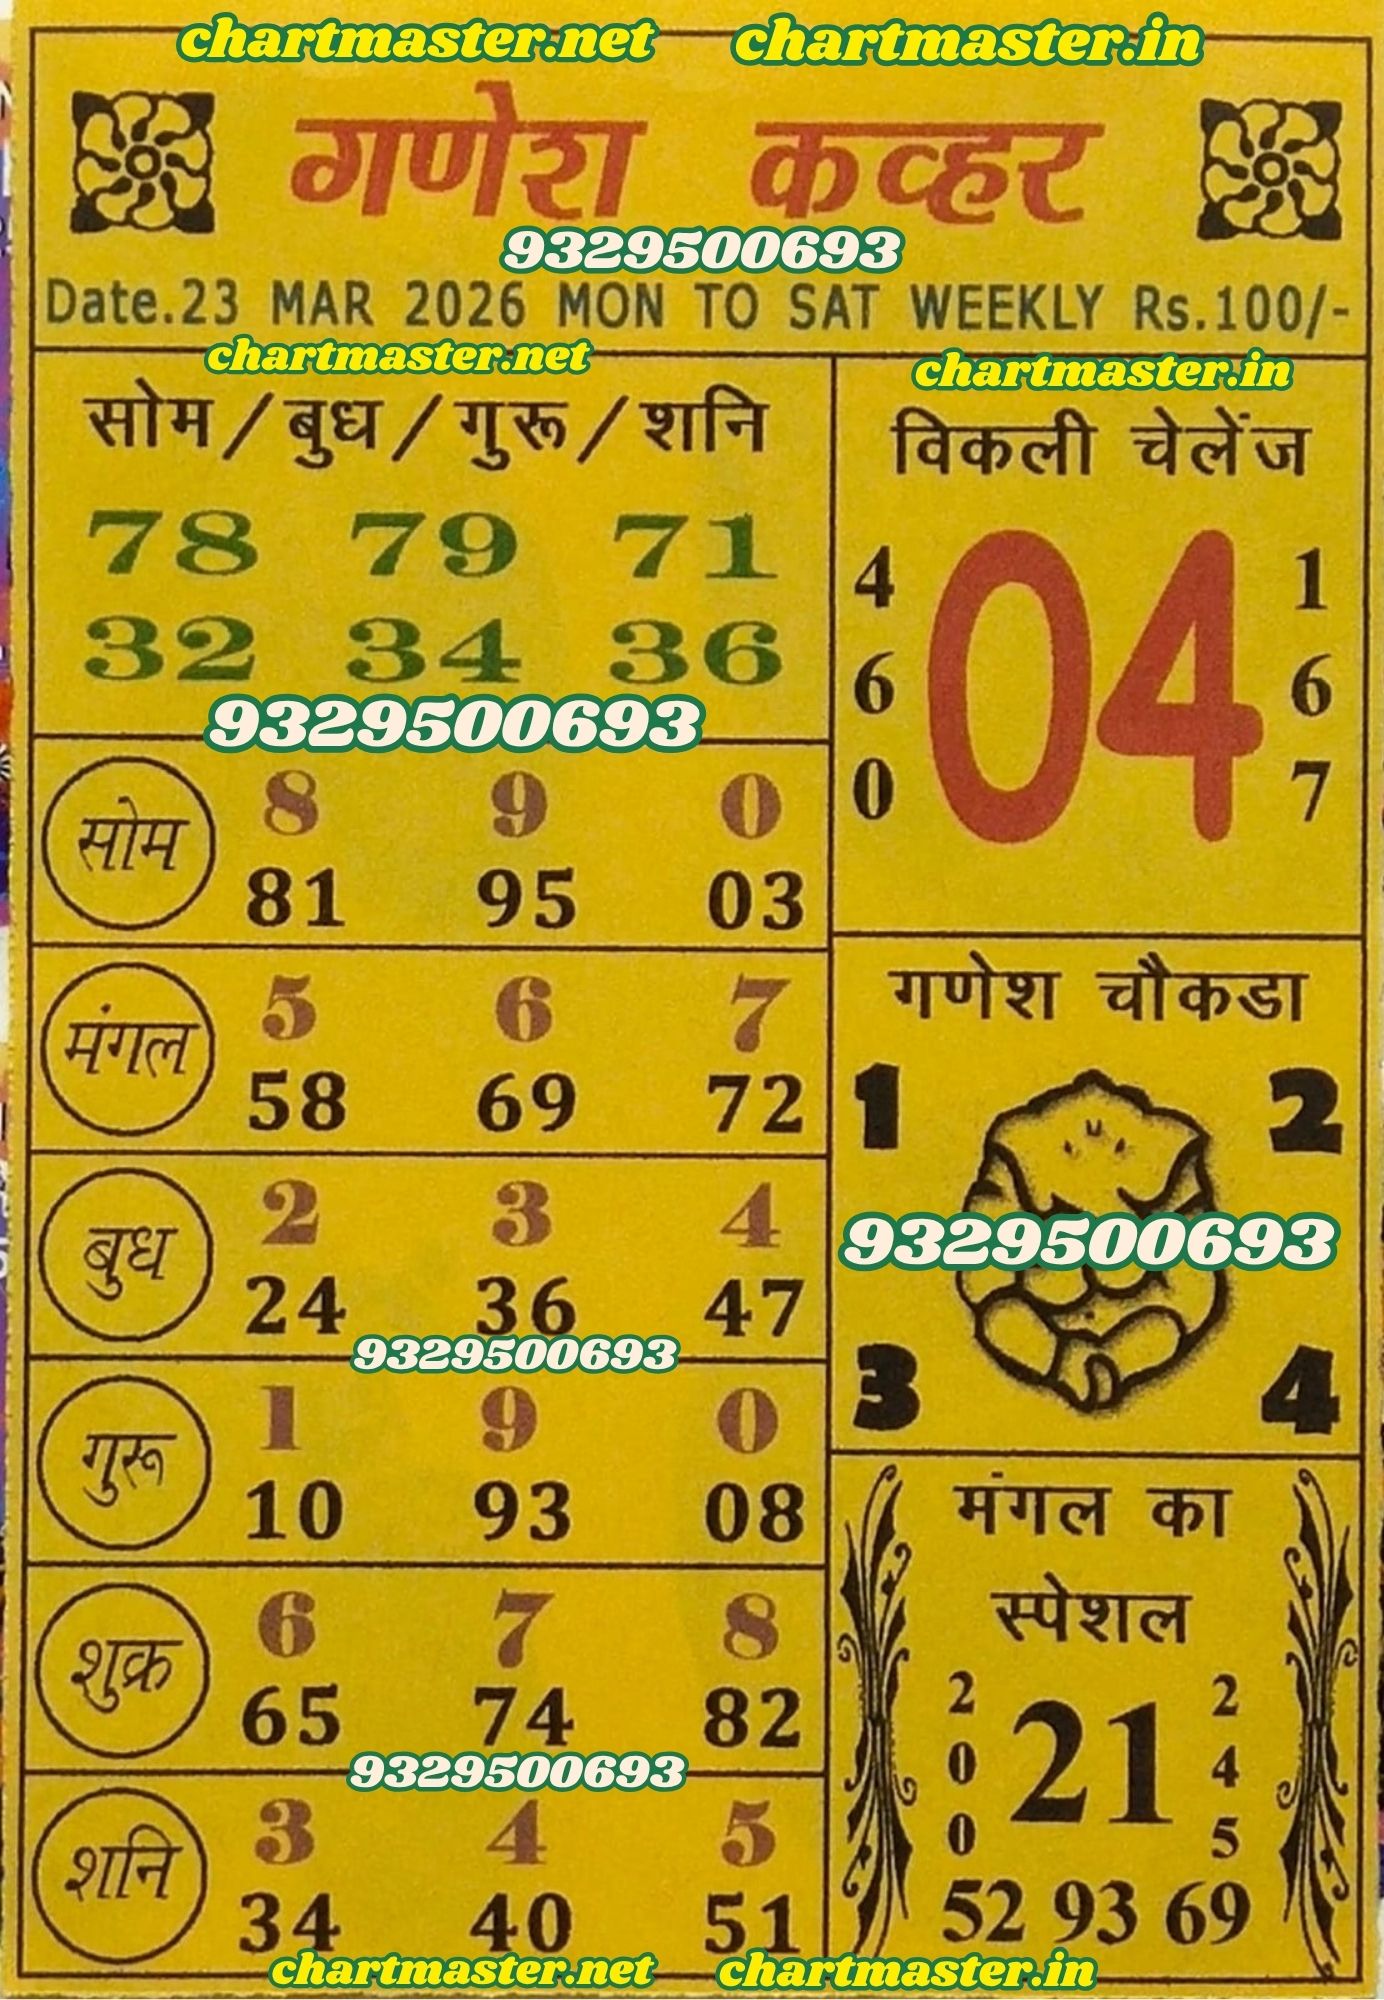 chartmaster.net chartmaster.in
गणेश कव्हर
9329500693
Date.23 MAR 2026 MON TO SAT WEEKLY Rs.100/-
chartmaster.net
सोम/बुध/गुरू/शनि
78 79 71
32 34 36
9329500693
सोम
8 9 0
81 95 03
मंगल
5 6 7
58 69 72
बुध
2 3 4
24 36 47
9329500693
गुरू
1 9 0
10 93 08
शुक्र
6 7 8
65 74 82
9329500693
शनि
3 4 5
34 40 51
chartmaster.in
विकली चेलेंज
4 1
6 04 6
0 7
गणेश चौकडा
1 2
9329500693
3 4
मंगल का
स्पेशल
2 2
0 21 4
0 5
52 93 69
chartmaster.net chartmaster.in